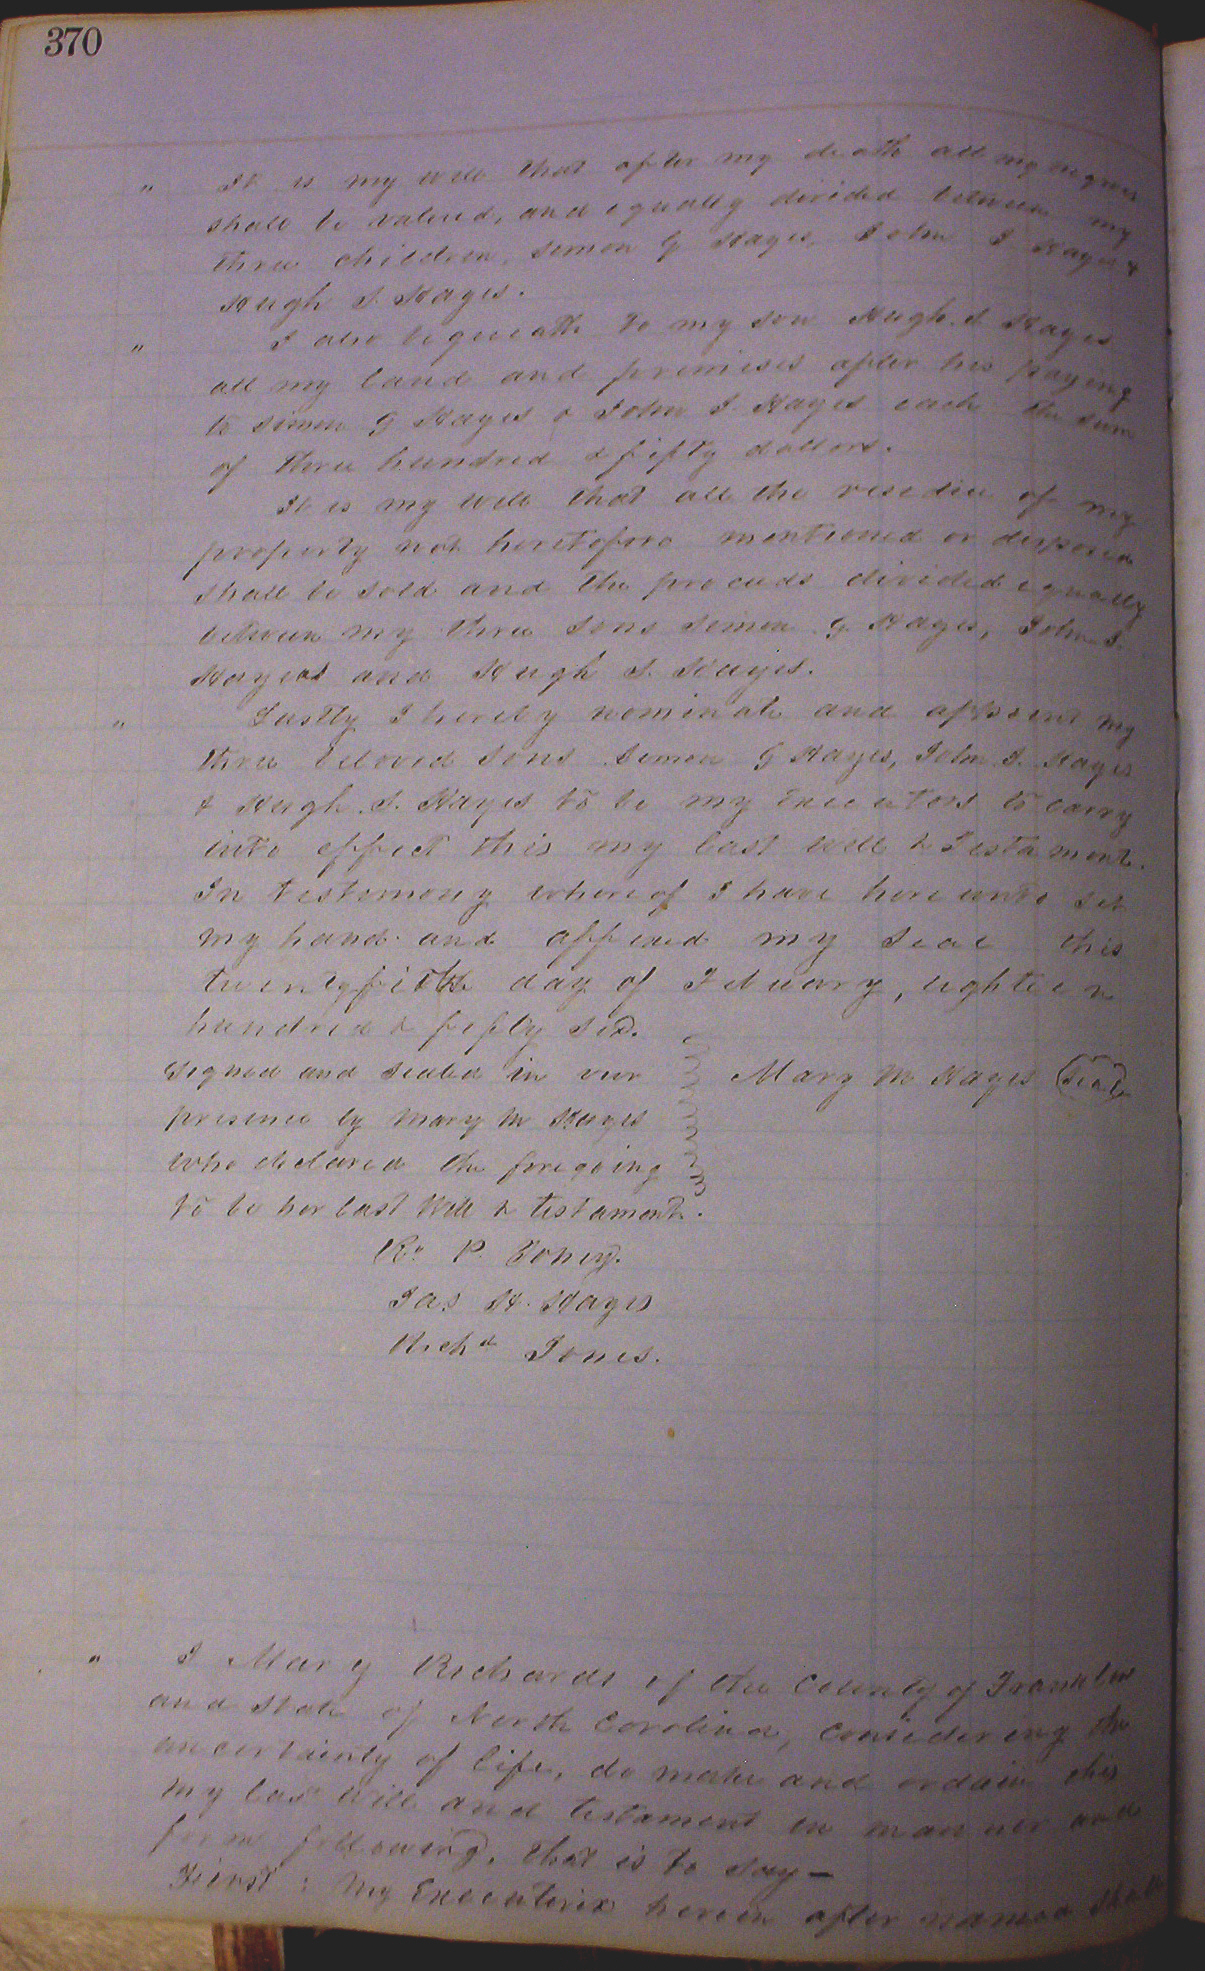 370
" It is my will that after my death all my negroes
shall be valued, and equally divided between my
three children, Simon G Hayes, John S. Hayes &
Hugh S. Hayes.
" I also bequeath to my son Hugh. S. Hayes
all my land and premises after his paying
to Simon G Hayes & John S. Hayes each the sum
of three hundred & fifty dollars.
It is my will that all the residue of my
property not heretofore mentioned or disposed
shall be sold and the proceeds divided equally
between my three sons Simon G. Hayes, John S.
Hayes and Hugh S. Hayes.
" Lastly I hereby nominate and appoint my
three beloved sons Simon G Hayes, John S. Hayes
& Hugh. S. Hayes to be my Executors to carry
into effect this my last will & Testament.
In testimony whereof I have hereunto set
my hand and affixed my seal this
twentyfifth day of February, eighteen
hundred & fifty six.
Signed and sealed in our Mary M Hayes (Seal)
presence by Mary M Hayes
who declared the foregoing
to be her last Will & testament.
R. P. Toney.
Jas H. Hayes
Richd Jones.
" I Mary Richards of the County of Franklin
and State of North Carolina, Considering the
uncertainty of life, do make and ordain this
my last Will and testament in manner and
form following, that is to say—
First: My Executrix herein after named shall